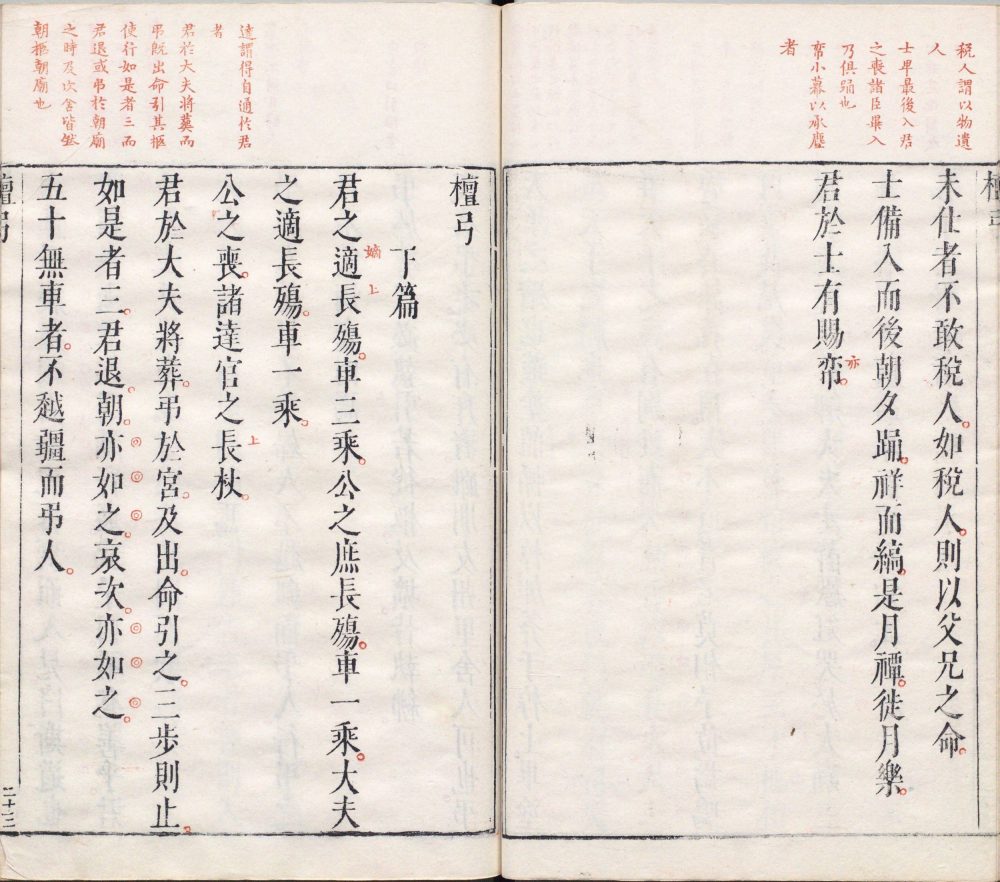 稅人謂以物遺
人
士卑最後入君
之喪諸臣畢入
乃俱踊也
帟小幕以承塵
者
檀弓
未仕者不敢稅人如稅人則以父兄之命
士備入而後朝夕踊祥而縞是月禫徙月樂
君於士有賜帟
亦
達謂得自通於君
者
君於大夫將葬而
弔既出命引其柩
使行如是者三而
君退或弔於朝廟
之時及次舍皆然
朝柩朝廟也
檀弓
下篇
君之適長殤車三乘公之庶長殤車一乘大夫
嫡
上
之適長殤車一乘
公之喪諸達官之長杖
上
君於大夫將葬弔於宮及出命引之三步則止
如是者三君退朝亦如之哀次亦如之
五十無車者不越疆而弔人
檀弓
二十三